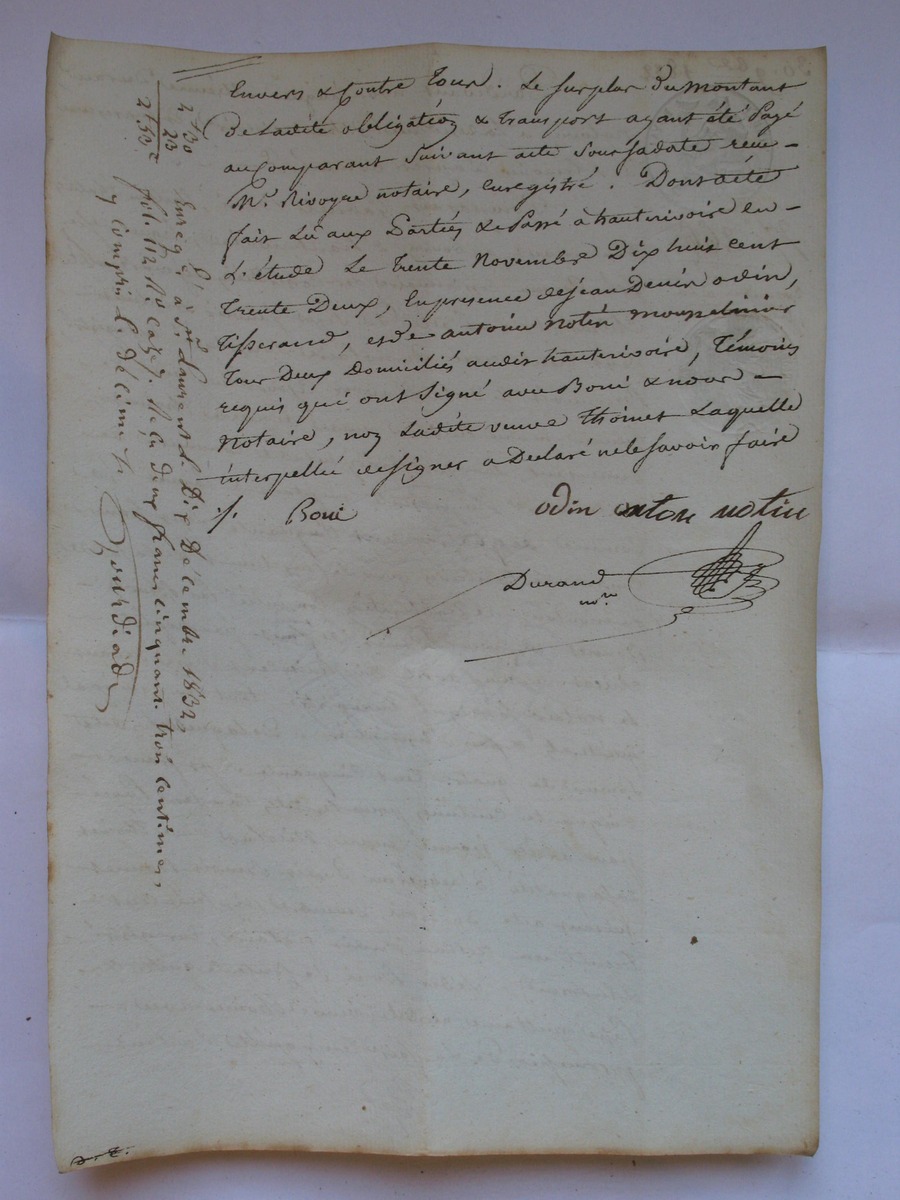 Envers & Contre Tous. Le surplus du montant
de Ladite obligation & transport ayant été Payé
au Comparant suivant acte sous sa date reçu
Me. Rivoyre notaire, enregistré. Dont acte
fait Lu aux Parties & Passé a hauterivoire en
L'étude Le trente Novembre Dix huit cent
trente Deux, En presence de jean Denis odin,
tisserand, et de antoine notin mousselinier
tous Deux Domiciliés audit hauterivoire, Témoins
requis qui ont Signé avec Boni & nous
Notaire, non Ladite veuve thoinet Laquelle
interpellée de signer a Declaré ne le savoir faire
./. Boni odin antone notin
Durand
nore
2f 30
23
2f 53c
Enregé à St Laurent le Dix Décembre 1832,
fol. 112 Ro Case 7. Reçu deux francs cinquante trois centimes,
y compris le décime ./.